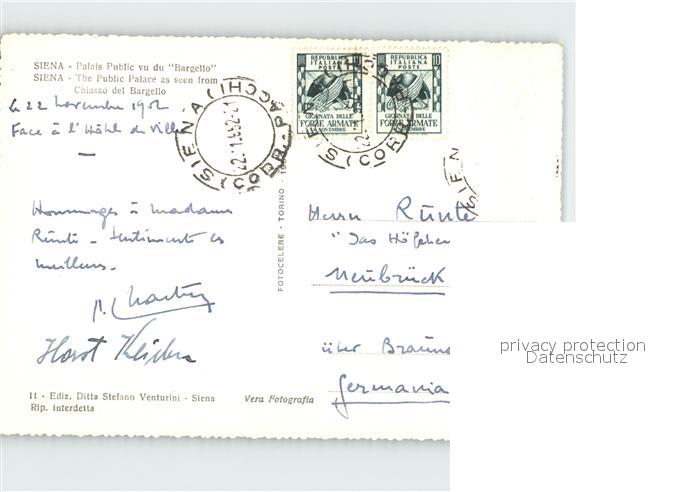 SIENA - Palais Public vu du "Bargello"
SIENA - The Public Palace as seen from
Chiasso del Bargello
le 22 novembre 1952
Face à l'Hôtel de Ville
—
Hommages à madame
Runte - Sentiments les
meilleurs.
Horst
11 - Ediz. Ditta Stefano Venturini - Siena
Rip. interdetta
Vera Fotografia
FOTOCELERE - TORINO
REPUBBLICA
ITALIANA
POSTE
10
GIORNATA DELLE
FORZE ARMATE
NOVEMBRE
REPUBBLICA
ITALIANA
POSTE
10
GIORNATA DELLE
FORZE ARMATE
NOVEMBRE
SIENA (CORR. PACCHI)
22.11.52-21
SIENA (CORR
22
SIEN
Herrn Runte
"Das
Neubrück
über Brauns
Germania
privacy protection
Datenschutz